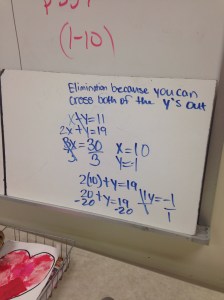 (1-10)
Elimination because you can
cross both of the Y's out
x+y=11
2x+y=19
3x=30
3 3
x=10
y=-1
2(10)+y=19
20+y=19
-20 -20
1y=-1
1 1